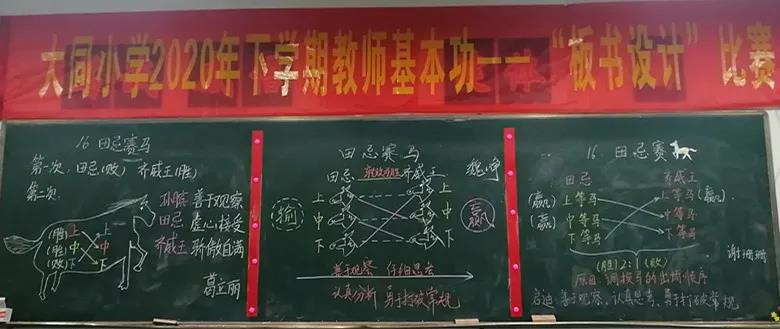 大同小学2020年下学期教师基本功——“板书设计”比赛
16 田忌赛马
第一次：田忌(败) 齐威王(胜)
第二次：
孙膑 善于观察
田忌 虚心接受
齐威王 骄傲自满
(胜) 上 上
(胜) 中 中
(败) 下 下
葛立丽
田忌赛马
魏峥
田忌 转败为胜 齐威王
上 上
输 中 中 赢
下 下
善于观察 仔细思考
认真分析 勇于打破常规
16. 田忌赛
田忌 齐威王
上等马 上等马 (赢)
(赢) 中等马 中等马
(赢) 下等马 下等马
(胜) 2:1 (败)
谢珊珊
原因：调换马的出场顺序
启迪：善于观察、认真思考、勇于打破常规